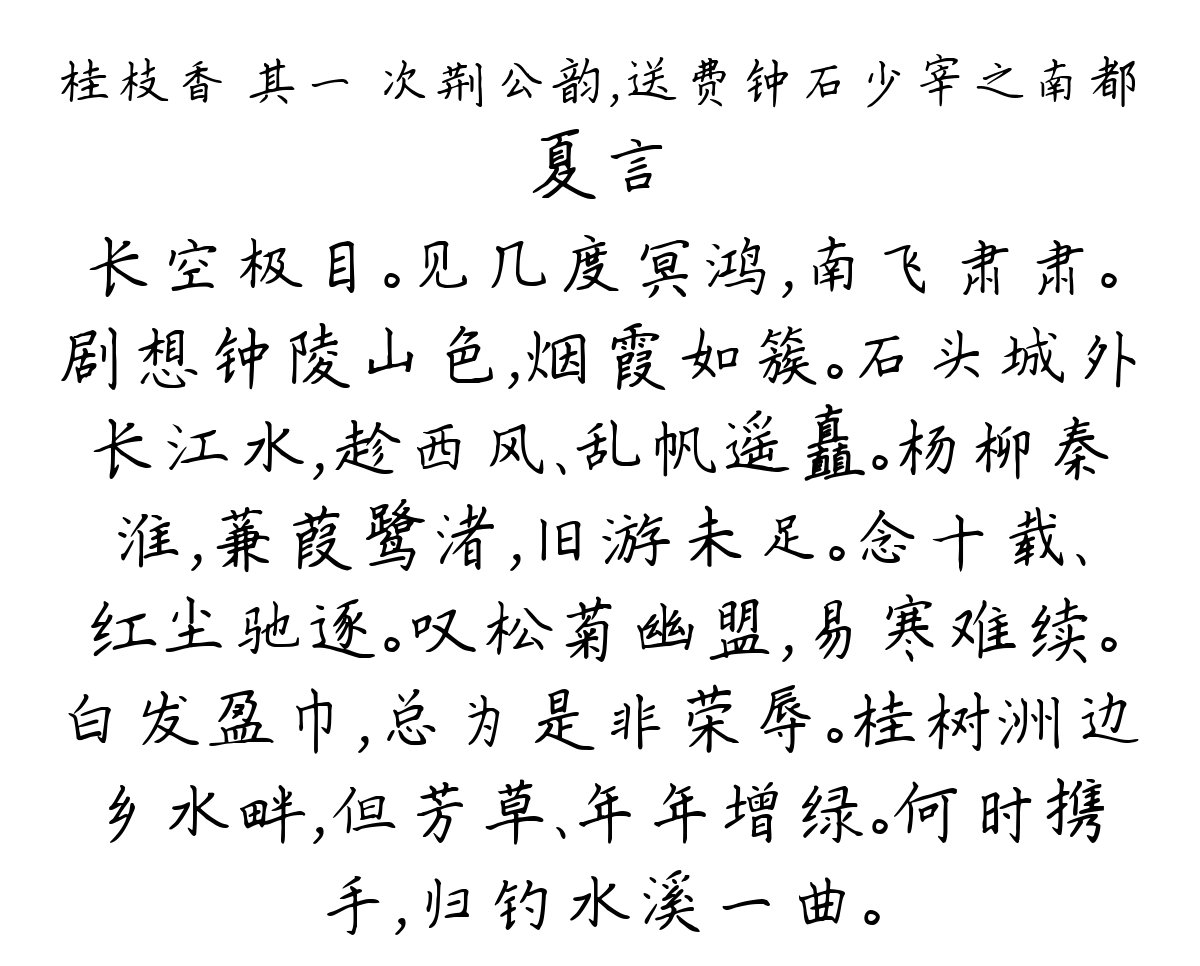 桂枝香 其一 次荆公韵,送费钟石少宰之南都
夏言
长空极目。见几度冥鸿,南飞肃肃。
剧想钟陵山色,烟霞如簇。石头城外
长江水,趁西风、乱帆遥矗。杨柳秦
淮,蒹葭鹭渚,旧游未足。念十载、
红尘驰逐。叹松菊幽盟,易寒难续。
白发盈巾,总为是非荣辱。桂树洲边
乡水畔,但芳草、年年增绿。何时携
手,归钓水溪一曲。